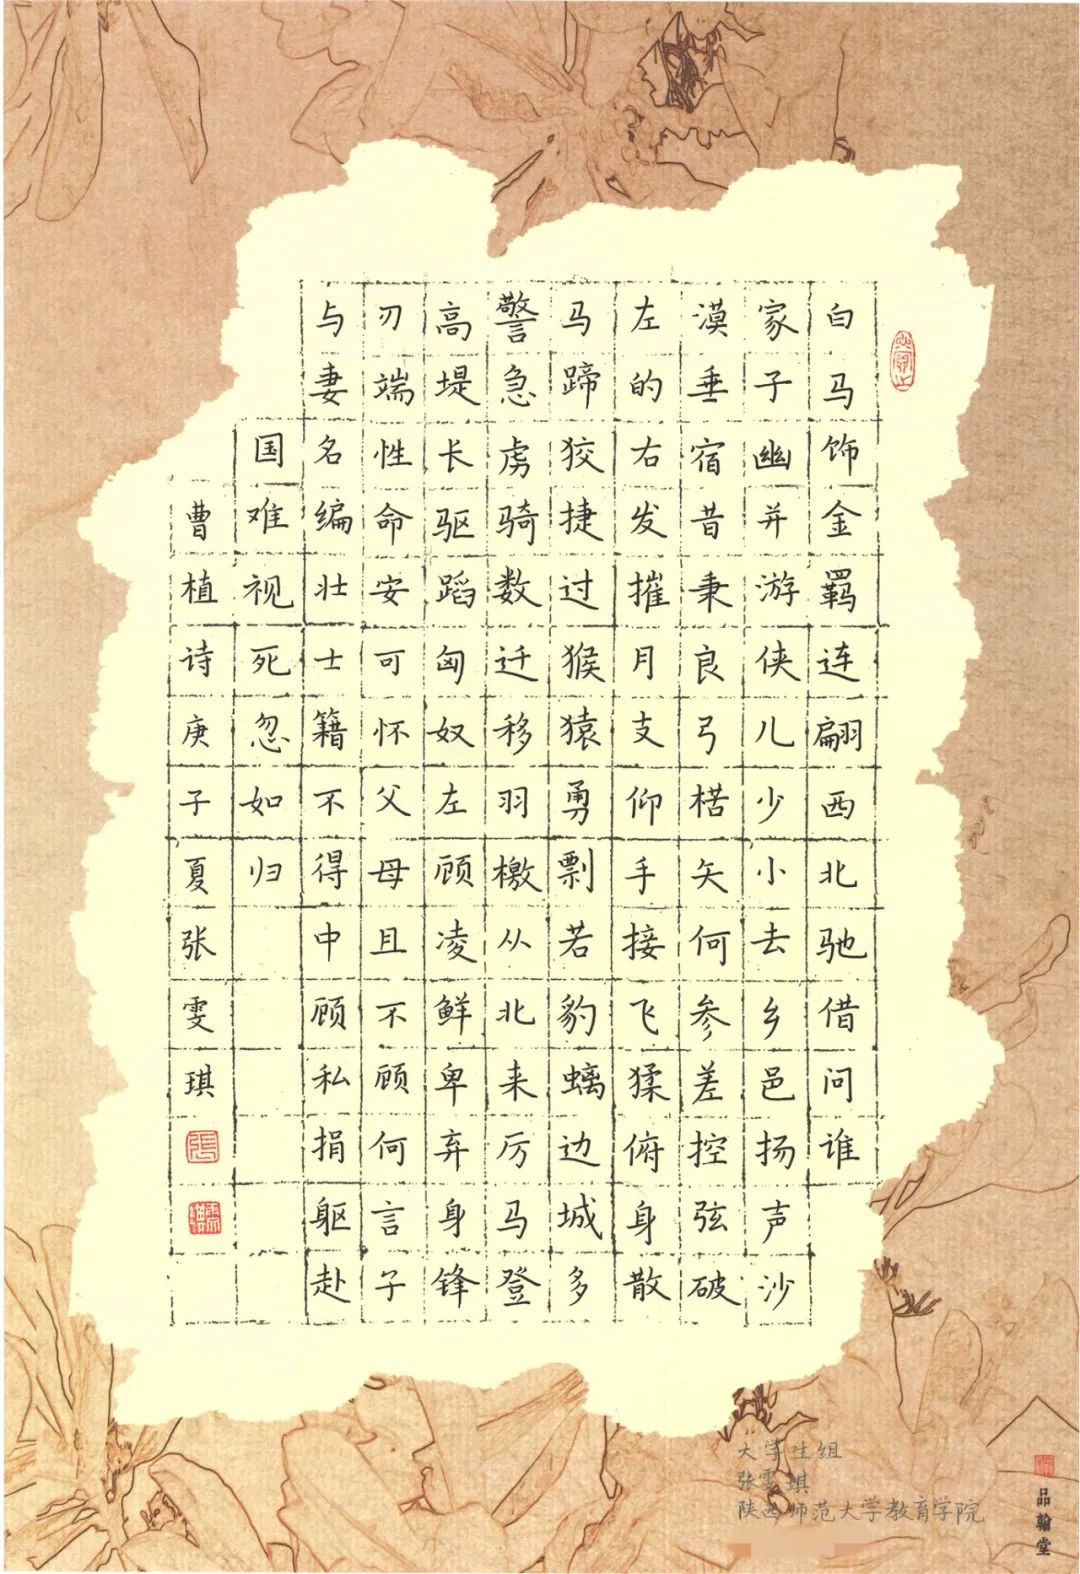 白马饰金羁连翩西北驰借问谁
家子幽并游侠儿少小去乡邑扬声沙
漠垂宿昔秉良弓楛矢何参差控弦破
左的右发摧月支仰手接飞猱俯身散
马蹄狡捷过猴猿勇剽若豹螭边城多
警急虏骑数迁移羽檄从北来厉马登
高堤长驱蹈匈奴左顾凌鲜卑弃身锋
刃端性命安可怀父母且不顾何言子
与妻名编壮士籍不得中顾私捐躯赴
国难视死忽如归
曹植诗庚子夏张雯琪
张
雯琪
大学生组
张雯琪
陕西师范大学教育学院
品翰堂